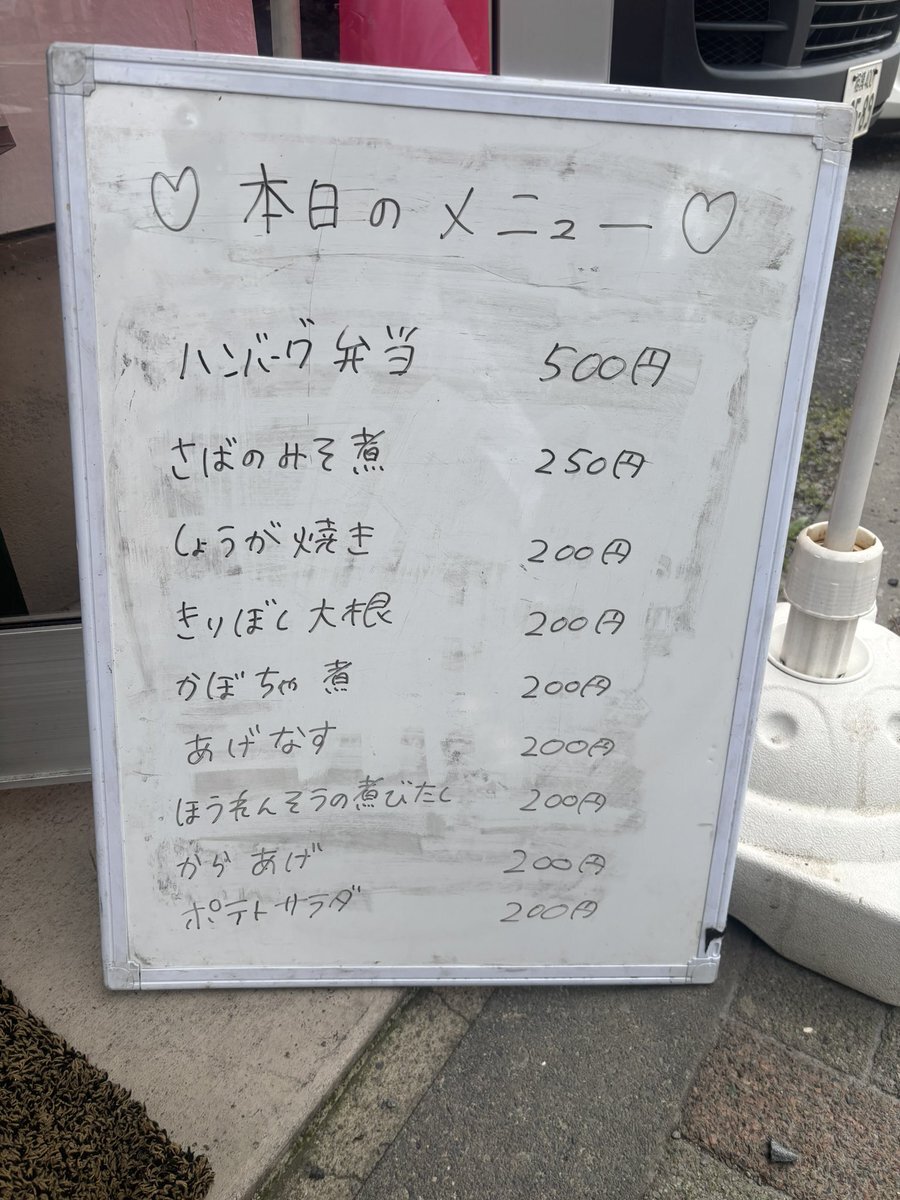 ♡ 本日のメニュー ♡
ハンバーグ弁当 500円
さばのみそ煮 250円
しょうが焼き 200円
きりぼし大根 200円
かぼちゃ煮 200円
あげなす 200円
ほうれんそうの煮びたし 200円
からあげ 200円
ポテトサラダ 200円